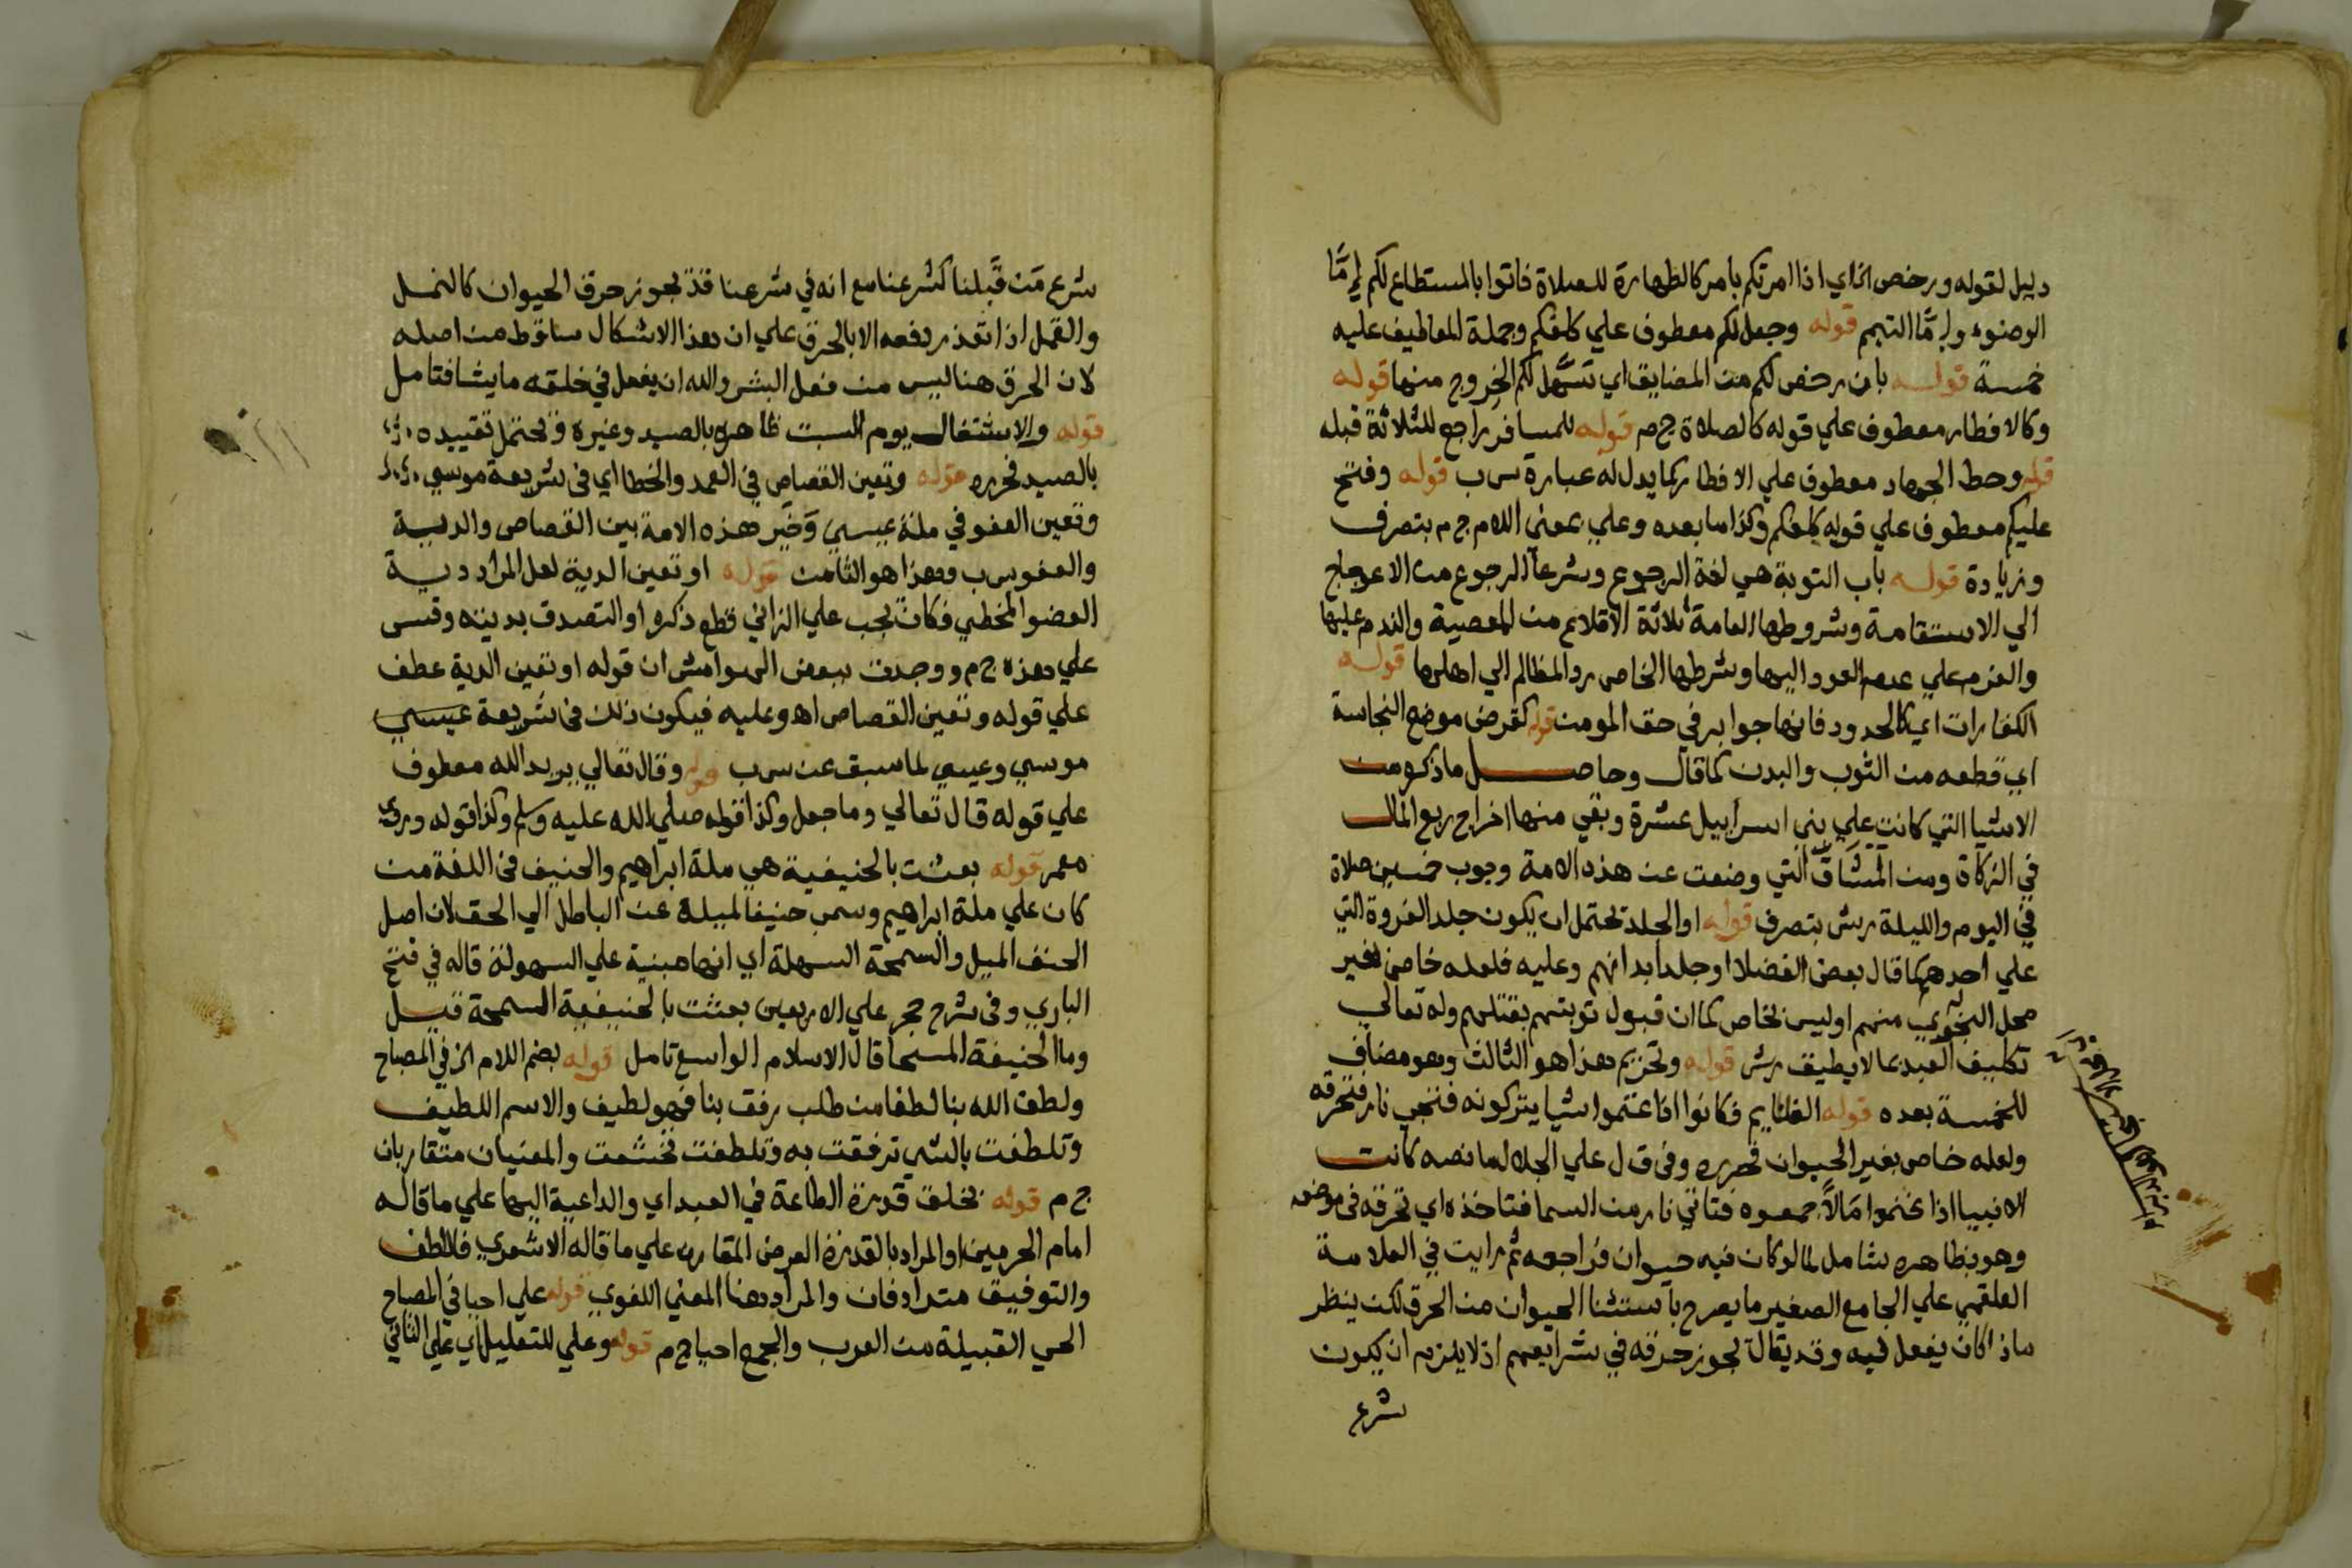 دليل لقوله ورخص الخ اي اذا امرتكم بامر كالطهارة للصلاة فاتوا بالمستطاع لكم اما
الوضوء واما التيمم قوله وجعل لكم معطوف علي كلفكم وجملة المعاطيف عليه
خمسة قوله بان رخص لكم من المضايق اي تسهل لكم الخروج منها قوله
وكالافطار معطوف علي قوله كالصلاة ج م قوله للمسافر راجع للثلاثة قبله
قوله وحط الجهاد معطوف علي الافطار كما يدل له عبارة س ب قوله وفتح
عليكم معطوف علي قوله كلفكم وكذا ما بعده وعلي بمعني اللام ج م بتصرف
وزيادة قوله باب التوبة هي لغة الرجوع وشرعا الرجوع من الاعوجاج
الي الاستقامة وشروطها العامة ثلاثة الاقلاع من المعصية والندم عليها
والعزم علي عدم العود اليها وشرطها الخاص رد المظالم الي اهلها قوله
الكفارات اي كالحدود فانها جوابر في حق المومن قوله كقرض موضع النجاسة
اي قطعه من الثوب والبدن كما قال وحاصل ما ذكر من
الاشيا التي كانت علي بني اسراييل عشرة وبقي منها اخراج ربع المال
في الزكاة ومن المشاق التي وضعت عن هذه الامة وجوب خمسين صلاة
في اليوم والليلة رش بتصرف قوله او الجلد تحتمل ان يكون جلد الفروة التي
علي احدهم كما قال بعض الفضلا او جلد ابدانهم وعليه فلعله خاص بغير
محل النجوي منهم او ليس بخاص كما ان قبول توبتهم بقتلهم وله تعالي
تكليف العبد بما لا يطيق رش قوله وتحريم هذا هو الثالث وهو مضاف
للخمسة بعده قوله الغنايم فكانوا اذا غنموا شيا يتركونه فتجي نار فتحرقه
ولعله خاص بغير الحيوان فحرره وفي ق ل علي الجلال ما نصه كانت
الانبيا اذا غنموا مالا جمعوه فتاتي نار من السما فتاخذه اي تحرقه في موضعه
وهو بظاهره شامل لما لو كان فيه حيوان فراجعه ثم رايت في العلامة
العلقمي علي الجامع الصغير ما يصرح باستثنا الحيوان من الحرق لكن ينظر
ماذا كان يفعل فيه وقد يقال تجوز حرقه في شرايعهم اذ لا يلزم ان يكون
شرع
شرع من قبلنا كشرعنا مع انه في شرعنا قد تجوز حرق الحيوان كالنمل
والقمل اذا تعذر دفعه الا بالحرق علي ان هذا الاشكال ساقط من اصله
لان الحرق هنا ليس من فعل البشر والله ان يفعل في خلقه ما يشا فتامل
قوله والاشتغال يوم السبت ظاهره بالصيد وغيره وتحتمل تقييده
بالصيد فحرره قوله وتعين القصاص في العمد والخطا اي في شريعة موسي
وتعين العفو في ملة عيسي وخير هذه الامة بين القصاص والدية
والعفو س ب وهذا هو الثامن قوله او تعين الدية لعل المراد دية
العضو المخطي فكان يجب علي الزاني قطع ذكره او التصدق بديته وقس
علي هذه ج م ووجدت ببعض الهوامش ان قوله او تعين الدية عطف
علي قوله وتعين القصاص اه وعليه فيكون ذلك في شريعة عيسي
موسي وعيسي لما سبق عن س ب قوله وقال تعالي يريد الله معطوف
علي قوله قال تعالي وما جعل وكذا قوله صلي الله عليه وسلم وكذا قوله وروي
معمر قوله بعثت بالحنيفية هي ملة ابراهيم والحنيف في اللغة من
كان علي ملة ابراهيم وسمي حنيفا لميله عن الباطل الي الحق لان اصل
الحنف الميل والسمحة السهلة اي انها مبنية علي السهولة قاله في فتح
الباري وفي شرح حجر علي الاربعين بعثت بالحنيفية السمحة قيل
وما الحنيفة السمحا قال الاسلام الواسع تامل قوله بضم اللام الخ في المصباح
ولطف الله بنا لطفا من طلب رفق بنا فهو لطيف والاسم اللطيف
وتلطفت بالشي ترفقت به وتلطفت تخشعت والمعنيان متقاربان
ج م قوله بخلق قدرة الطاعة في العبد اي والداعية اليها علي ما قاله
امام الحرمين او المراد بالقدرة العرض المقارن علي ما قاله الاشعري فاللطف
والتوفيق مترادفان والمراد هنا المعني اللغوي قوله علي احيا في المصباح
الحي القبيلة من العرب والجمع احيا ج م قوله وعلي للتعليل اي علي الثاني